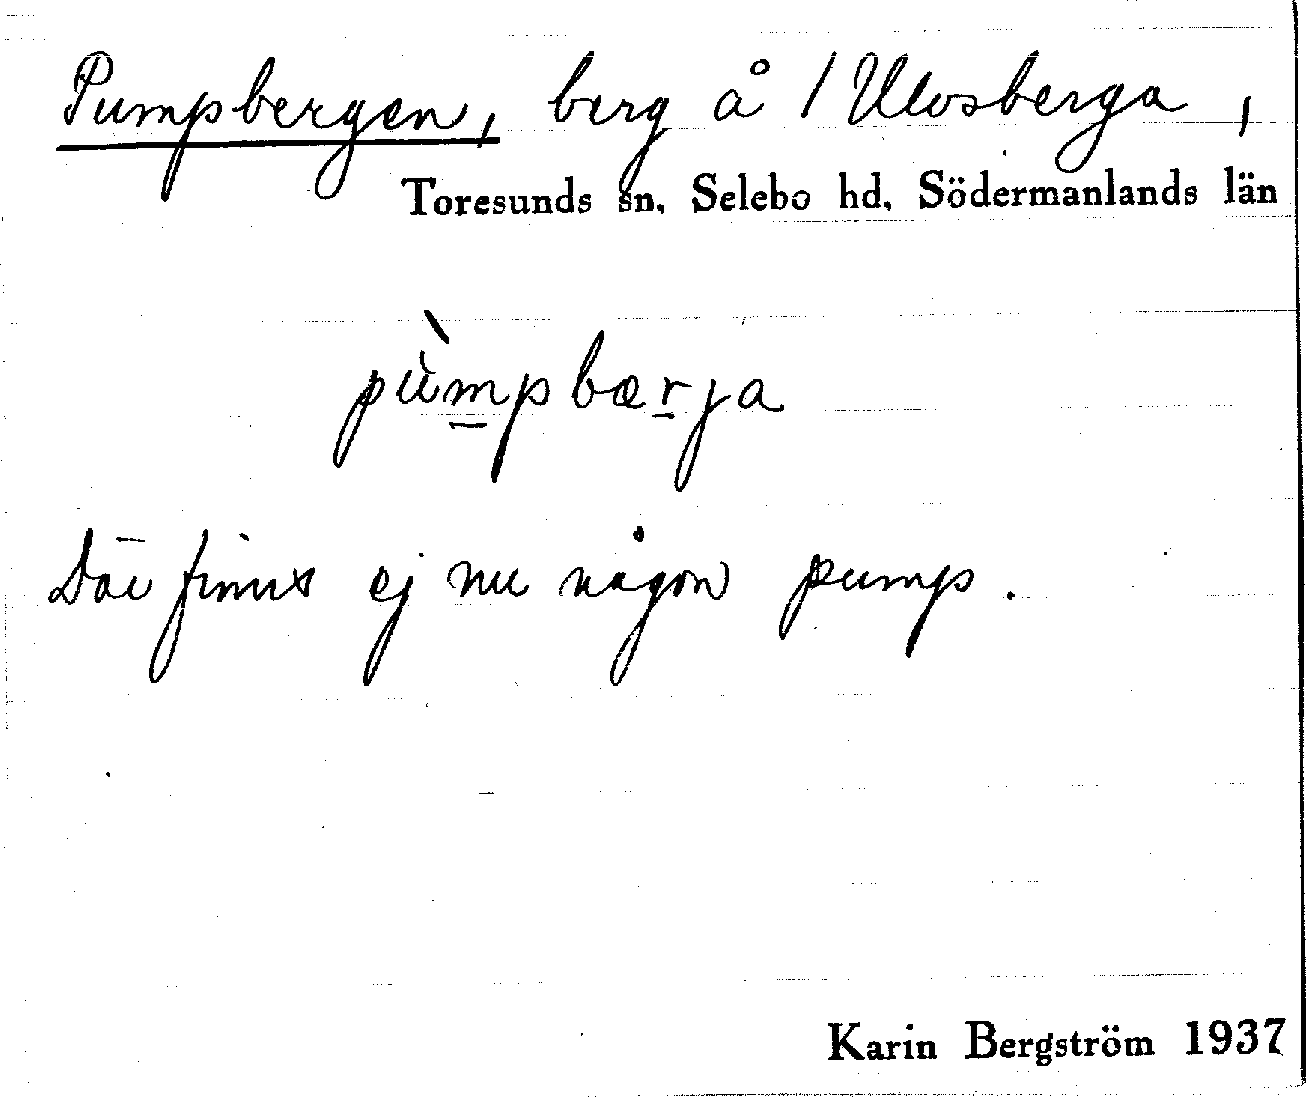 Pumpbergen, berg å / Ulvsberga,
Toresunds sn, Selebo hd, Södermanlands län
pùmpbærja
Där finnes ej nu någon pump.
Karin Bergström 1937